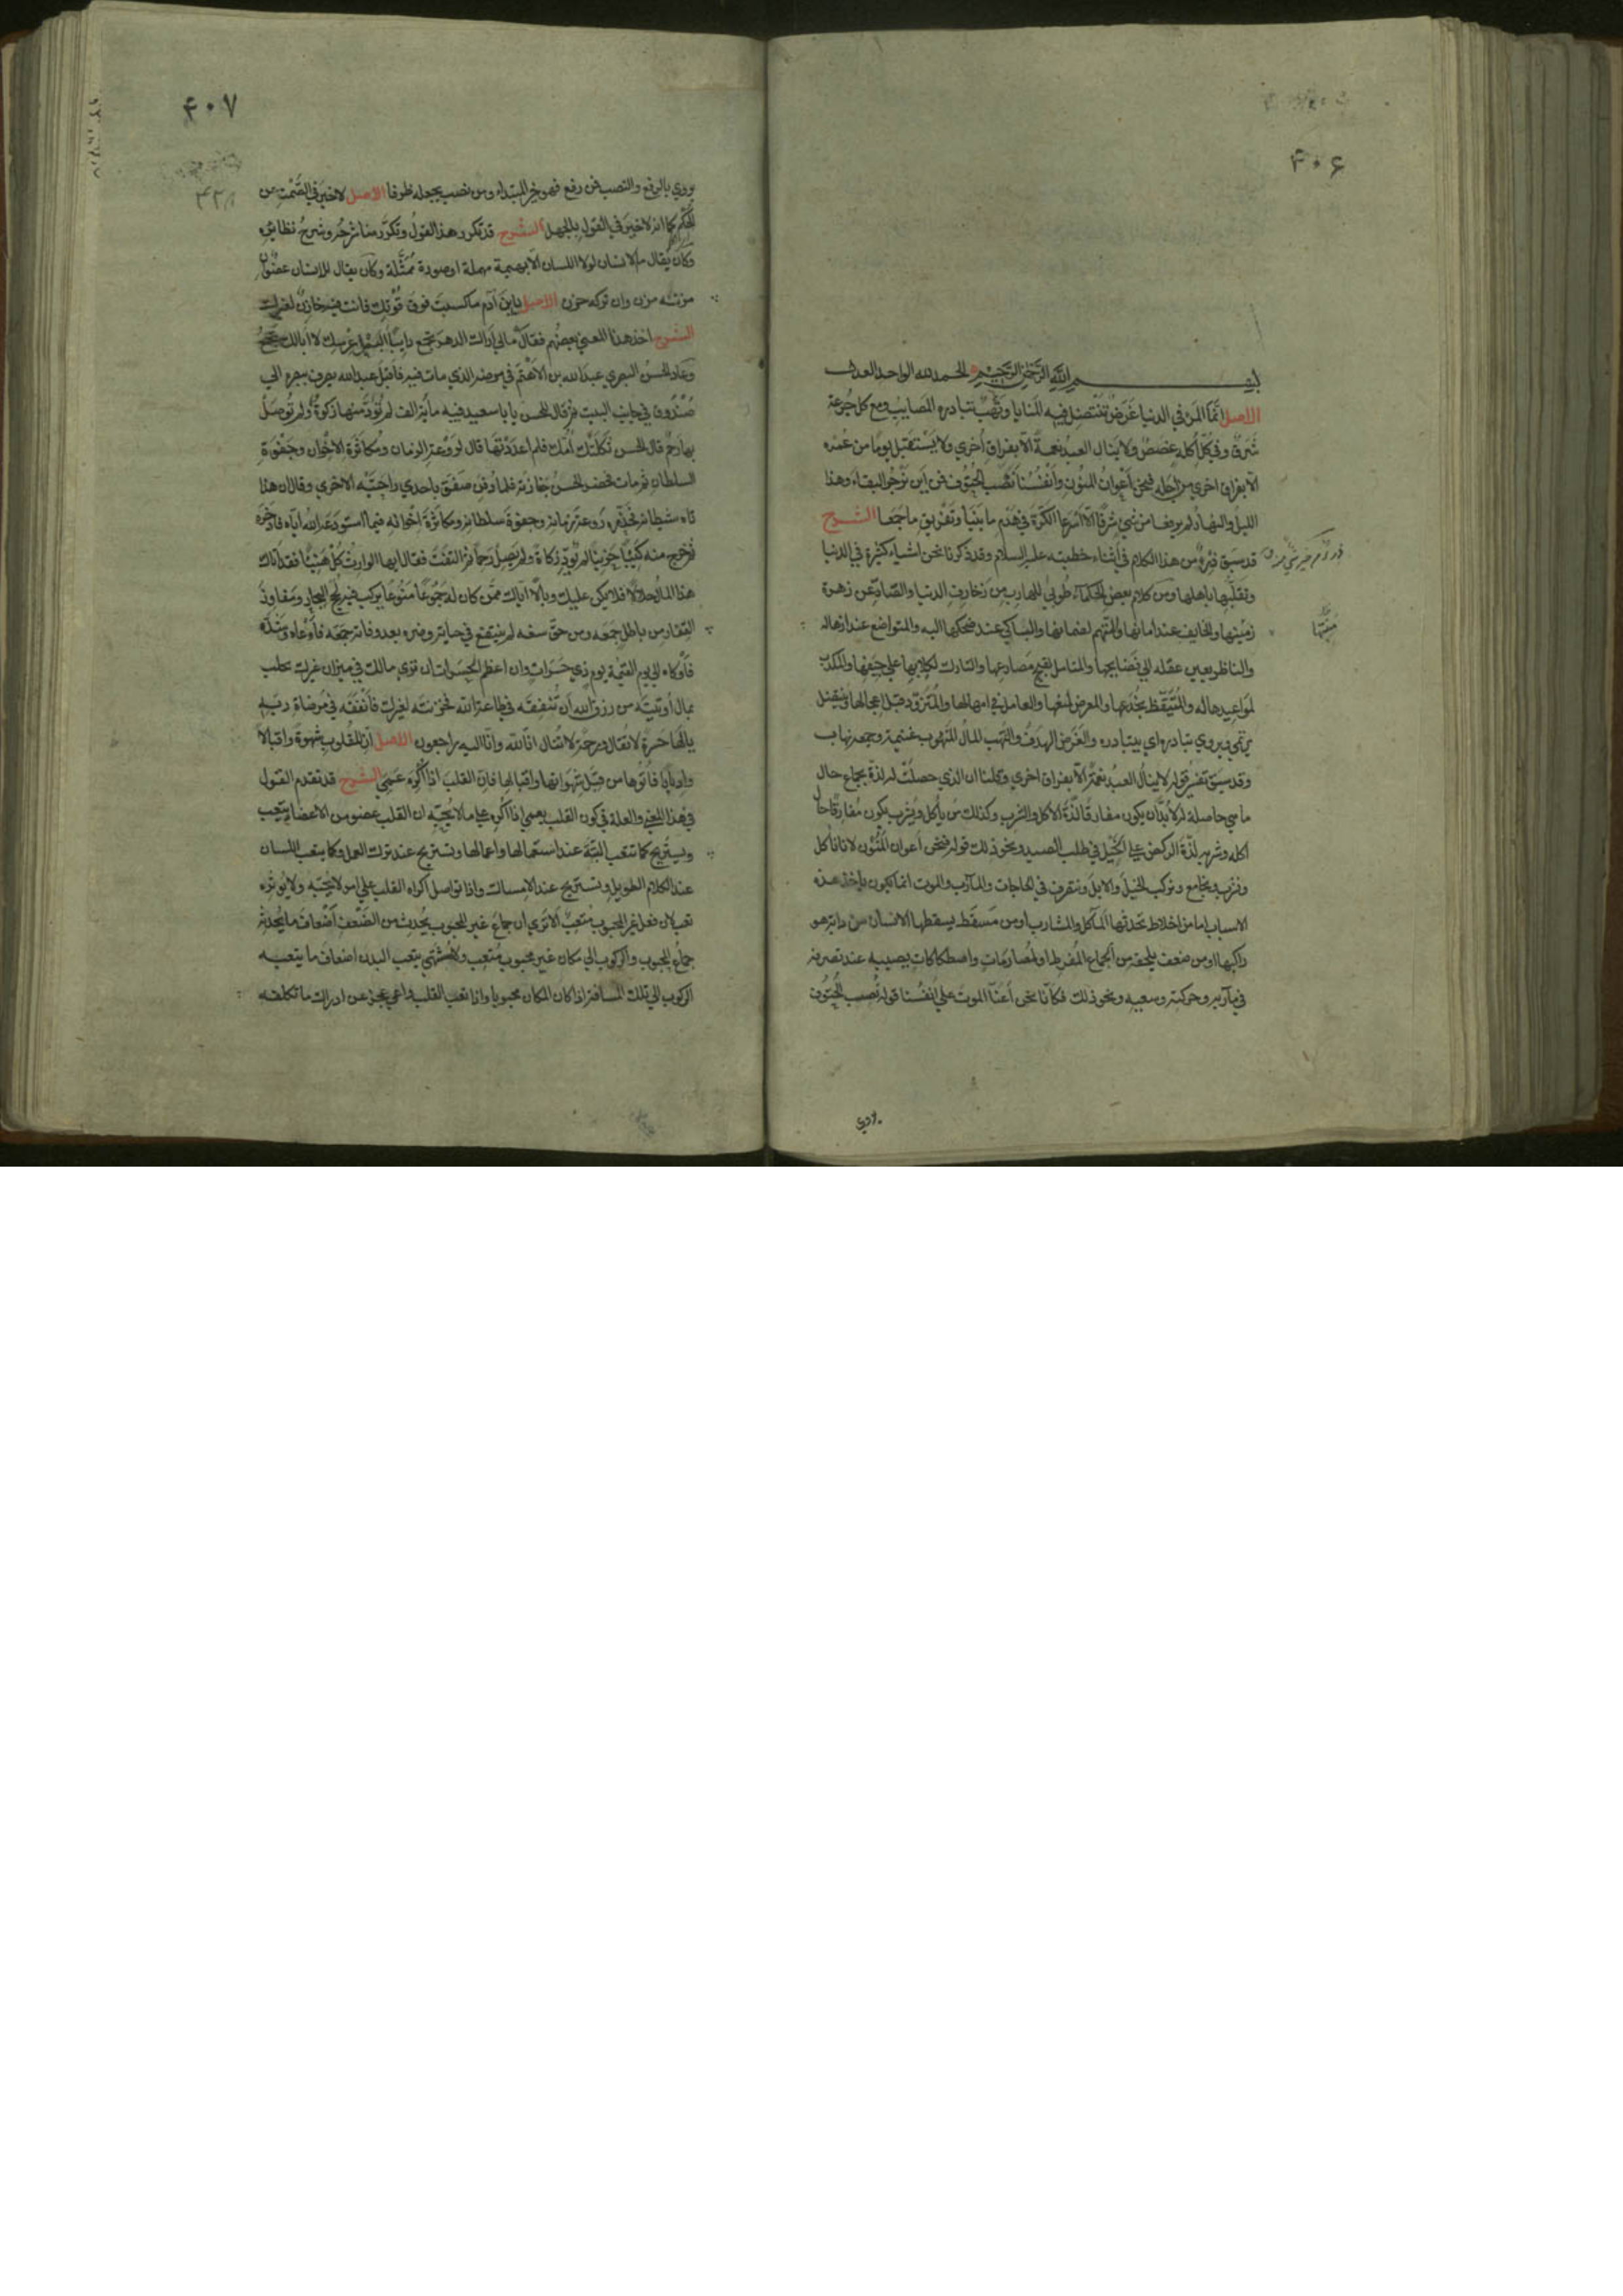 ۴۰۶
بسم الله الرحمن الرحيم الحمد لله الواحد العدل
الاصل انما المرء في الدنيا غَرَضٌ تَنْتَضِل فيه المنايا ونَهْبٌ تبادره المصايب ومع كل جُرعة
شَرَقٌ وفي كل أُكلة غصصٌ ولا ينال العبد نعمةً الا بفراق أُخري ولا يَسْتقبل يوما من عُمُره
الا بفراق اخري من اجله فنحن أعوانُ المنُون وأنْفُسُنا نُصُب الحتُوف فمن اين نَرْجُو البقاء وهذا
الليلُ والنهار لم يرفعا من شيٍ شرفًا الا اَسْرعا الكَرَّة في هَدْم ما بَنَيا وتفريق ما جَمَعا الشرح
قد سبق من هذا الكلام في أثناء خطبته عليه السلام وقد ذكرنا نحن اشياء كثيرة في الدنيا
وتقلّبها باهلها ومن كلام بعض الحكماء طُوبٰي للهارب من زخارف الدنيا والصّادّ عن زهرة
زينتها والخايف عند امانها والمتهم لضمانها والباكي عند ضحكها اليه والمتواضع عند اذلاله
والناظر بعين عقله الي فضايحها والمتامل لقبيح مصارعها والتارك لكلابها علي جِيَفها والمكذّب
لمواعيدها له والمُتيقّظ لخُدَعها والمعرض لُمَعها والعامل في امهالها والمُتزوّد قبل اعجالها
ويروي تبادره اي يتبادره والغَرَض الهدف والنَّهْب المال المنهوب غنيمة وجمعه نهاب
وقد سبق تفسير قوله لا ينال العبدُ نعمةً الا بفراق اخري وقلنا ان الذي حصلَتْ له لذّة الجماع حال
ما هي حاصلة له لابُدّ ان يكون مفارقا لذّة الاكل والشرب وكذلك من ياكل ويشرب يكون مُفارِقًا حال
اكله وشربه لذّة الركض علي الخيل في طلب الصيد ونحو ذلك قوله فنحن أعوان المنُون لانا ناكل
ونشرب ونجامع ونركب الخيل والابل ونتصرف في الحاجات والمآرب والموت انما يكون باحد هذه
الاسباب اما من اخلاط تحدثها المآكل والمشارب او من مَسقَط يسقطها الانسان من دابة هو
راكبها او من ضعف يلحقه من الجماع المُفرط او لمُصادمات واصطكاكات يصيبه عند تصرفه
في مآربه وحركته وسعيه ونحو ذلك فكأنّا نحن أعَنّا الموت علي انفُسنا قوله نُصب الحتُوف
يروي
۴۰۷
يروي بالرفع والنصب فمن رفع فهو خبر المبتداء ومن نصب يجعله ظرفا الاصل لا خير في الصَّمْت عن
الحُكْم كما انه لا خير في القول بالجهل الشرح قد تكرر هذا القولُ وتكرّر منا شرحُه وشرحُ نظائره
وكان يُقال ما الانسان لولا اللسان الا بهيمة مهملة او صورة مُمَثّلة وكان يقال للانسان عضوٌ
الاصل يابن آدم ما كسبتَ فوق قُوتك فانت فيه خازنٌ لغيرك
الشرح اخذ هذا المعني بعضُهم فقال ما لي أراك الدهر تجمع دايبًا ألبَعْل عِرْسِك لا ابالك تجمعُ
وعاد الحسنُ البصري عبدَ الله بن الاهتم في مرضه الذي مات فيه فاقبل عبد الله يصرف ببصره الي
صُنْدُوق في جانب البيت ثم قال للحسن يا با سعيد فيه مأية الف لم تُؤدَّ منها زكوةٌ ولم تُوصَلْ
بها رحمٌ قال الحسن ثكلتْك أُمّك فلِمَ اعدَدْتَها قال لرَوْعة الزمان ومُكاثَرة الاخوان وجَفْوة
السلطان ثم مات فحضر الحسنُ جنازته فلما دُفن صفق باحدي راحتيه الاخري وقال ان هذا
تاه شيطانه فحذّره رَوعةَ زمانه وجفوةَ سلطانه ومكاثرةَ اخوانه فيما استودعه الله اياه فادخره
ثم خرج منه كئيبًا حزينًا لم يؤدّ زكاة ولم يصل رحمًا ثم التفتَ فقال ايها الوارث كُلْ هنيئًا فقد اتاك
هذا المال حلالًا فلا يكن عليك وبالًا اتاك ممّن كان له جَمُوعًا مَنُوعًا يركب فيه لُجَج البحار ومفاوز
القِفار من باطل جمعه ومن حقّ منعه لم ينتفع في حياته وضره بعد وفاته جمعه فأوعاه وشدّه
فأوكاه الي يوم القيمة يوم ذي حسرات وان اعظم الحسرات ان تري مالك في ميزان غيرك بخلت
بمال أُوتيتَه من رزق الله ان تُنفقه في طاعة الله فخزنته لغيرك فأنفقه في مرضاة ربّه
يالها حسرةً لا تُقال ورحمةً لا تُنال انّا لله وانا اليه راجعون الاصل ان للقلوب شهوةً واقبالا
وادبارًا فأتُوها من قِبَل شهواتها واقبالها فان القلب اذا أُكره عَمِيَ الشرح قد تقدم القول
في هذا المعني والعلة في كون القلب يعمي اذا أُكره علي ما لا يُحبّه ان القلب عضو من الاعضاء يتعب
ويستريح كما تتعب الجُثّة عند استعمالها واعمالها وتستريح عند ترك العمل وكما يتعب اللسان
عند الكلام الطويل ويستريح عند الامساك واذا تواصل اكراه القلب علي امر لا يُحبّه ولا يُؤثره
تعب لان فعل غير المحبوب مُتعبٌ الا تري ان جماع غير المحبوب يُحدث من الضعف اضعاف ما يُحدثه
جماعُ المحبوب والركوب الي مكان غير محبوب مُتعِب ولا مُشْتَهي يتعب البدن اضعاف ما يتعبه
الركوب الي تلك المسافة اذا كان المكان محبوبا واذا تعب القلب واعيي عجز عن ادراك ما تكلفه